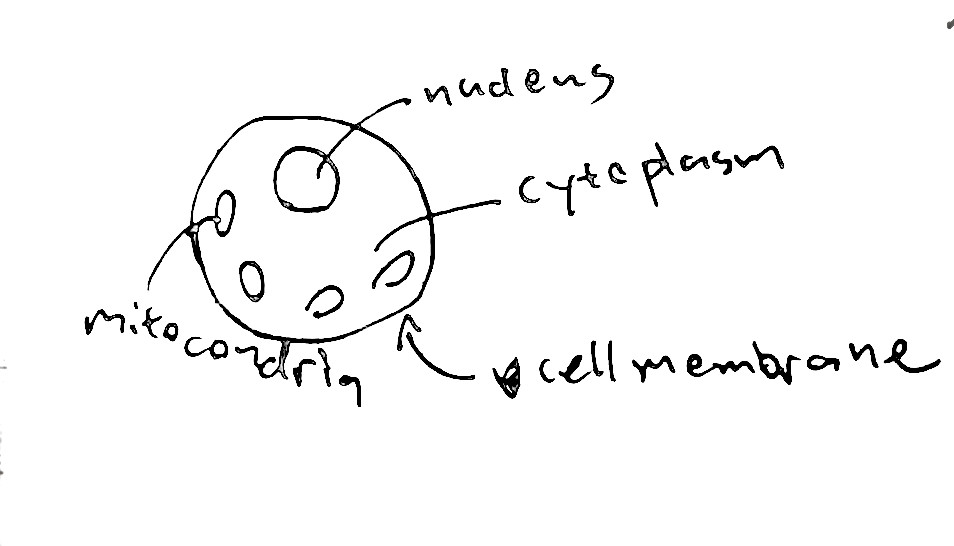 nucleus
cytoplasm
mitocondria
cell membrane